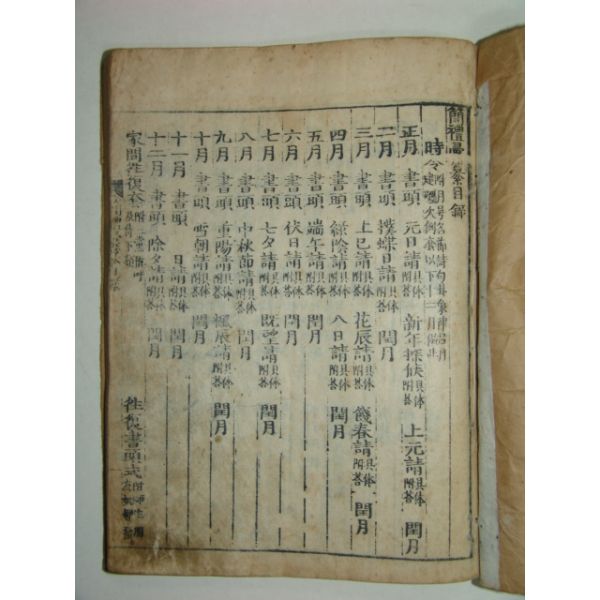 簡禮彙纂目錄
時令
正月 書頭 元日請具体附答 新年探候具体附答 上元請具体附答 閏月
二月 書頭 撲蝶日請具体附答 閏月
三月 書頭 上巳請具体附答 花辰請具体附答 餞春請具体附答 閏月
四月 書頭 綠陰請具体附答 八日請具体附答 閏月
五月 書頭 端午請具体附答 閏月
六月 書頭 伏日請具体附答 閏月
七月 書頭 七夕請具体附答 旣望請具体附答 閏月
八月 書頭 中秋節請具体附答 閏月
九月 書頭 重陽請具体附答 楓辰請具体附答 閏月
十月 書頭 朝請具体附答 閏月
十一月 書頭 日請具体附答 閏月
十二月 書頭 除夕請具体附答 閏月
家間往復 往復書頭式